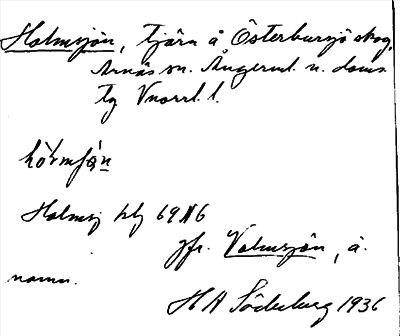 Holmsjön, tjärn å Österbursjö skog,
Arnäs sn. Ångerml. n. doms.
tg Vnorrl. l.
Holmsj hlg 69 N6
jfr. Valmsjön, à.
namn.
H A Söderberg 1936